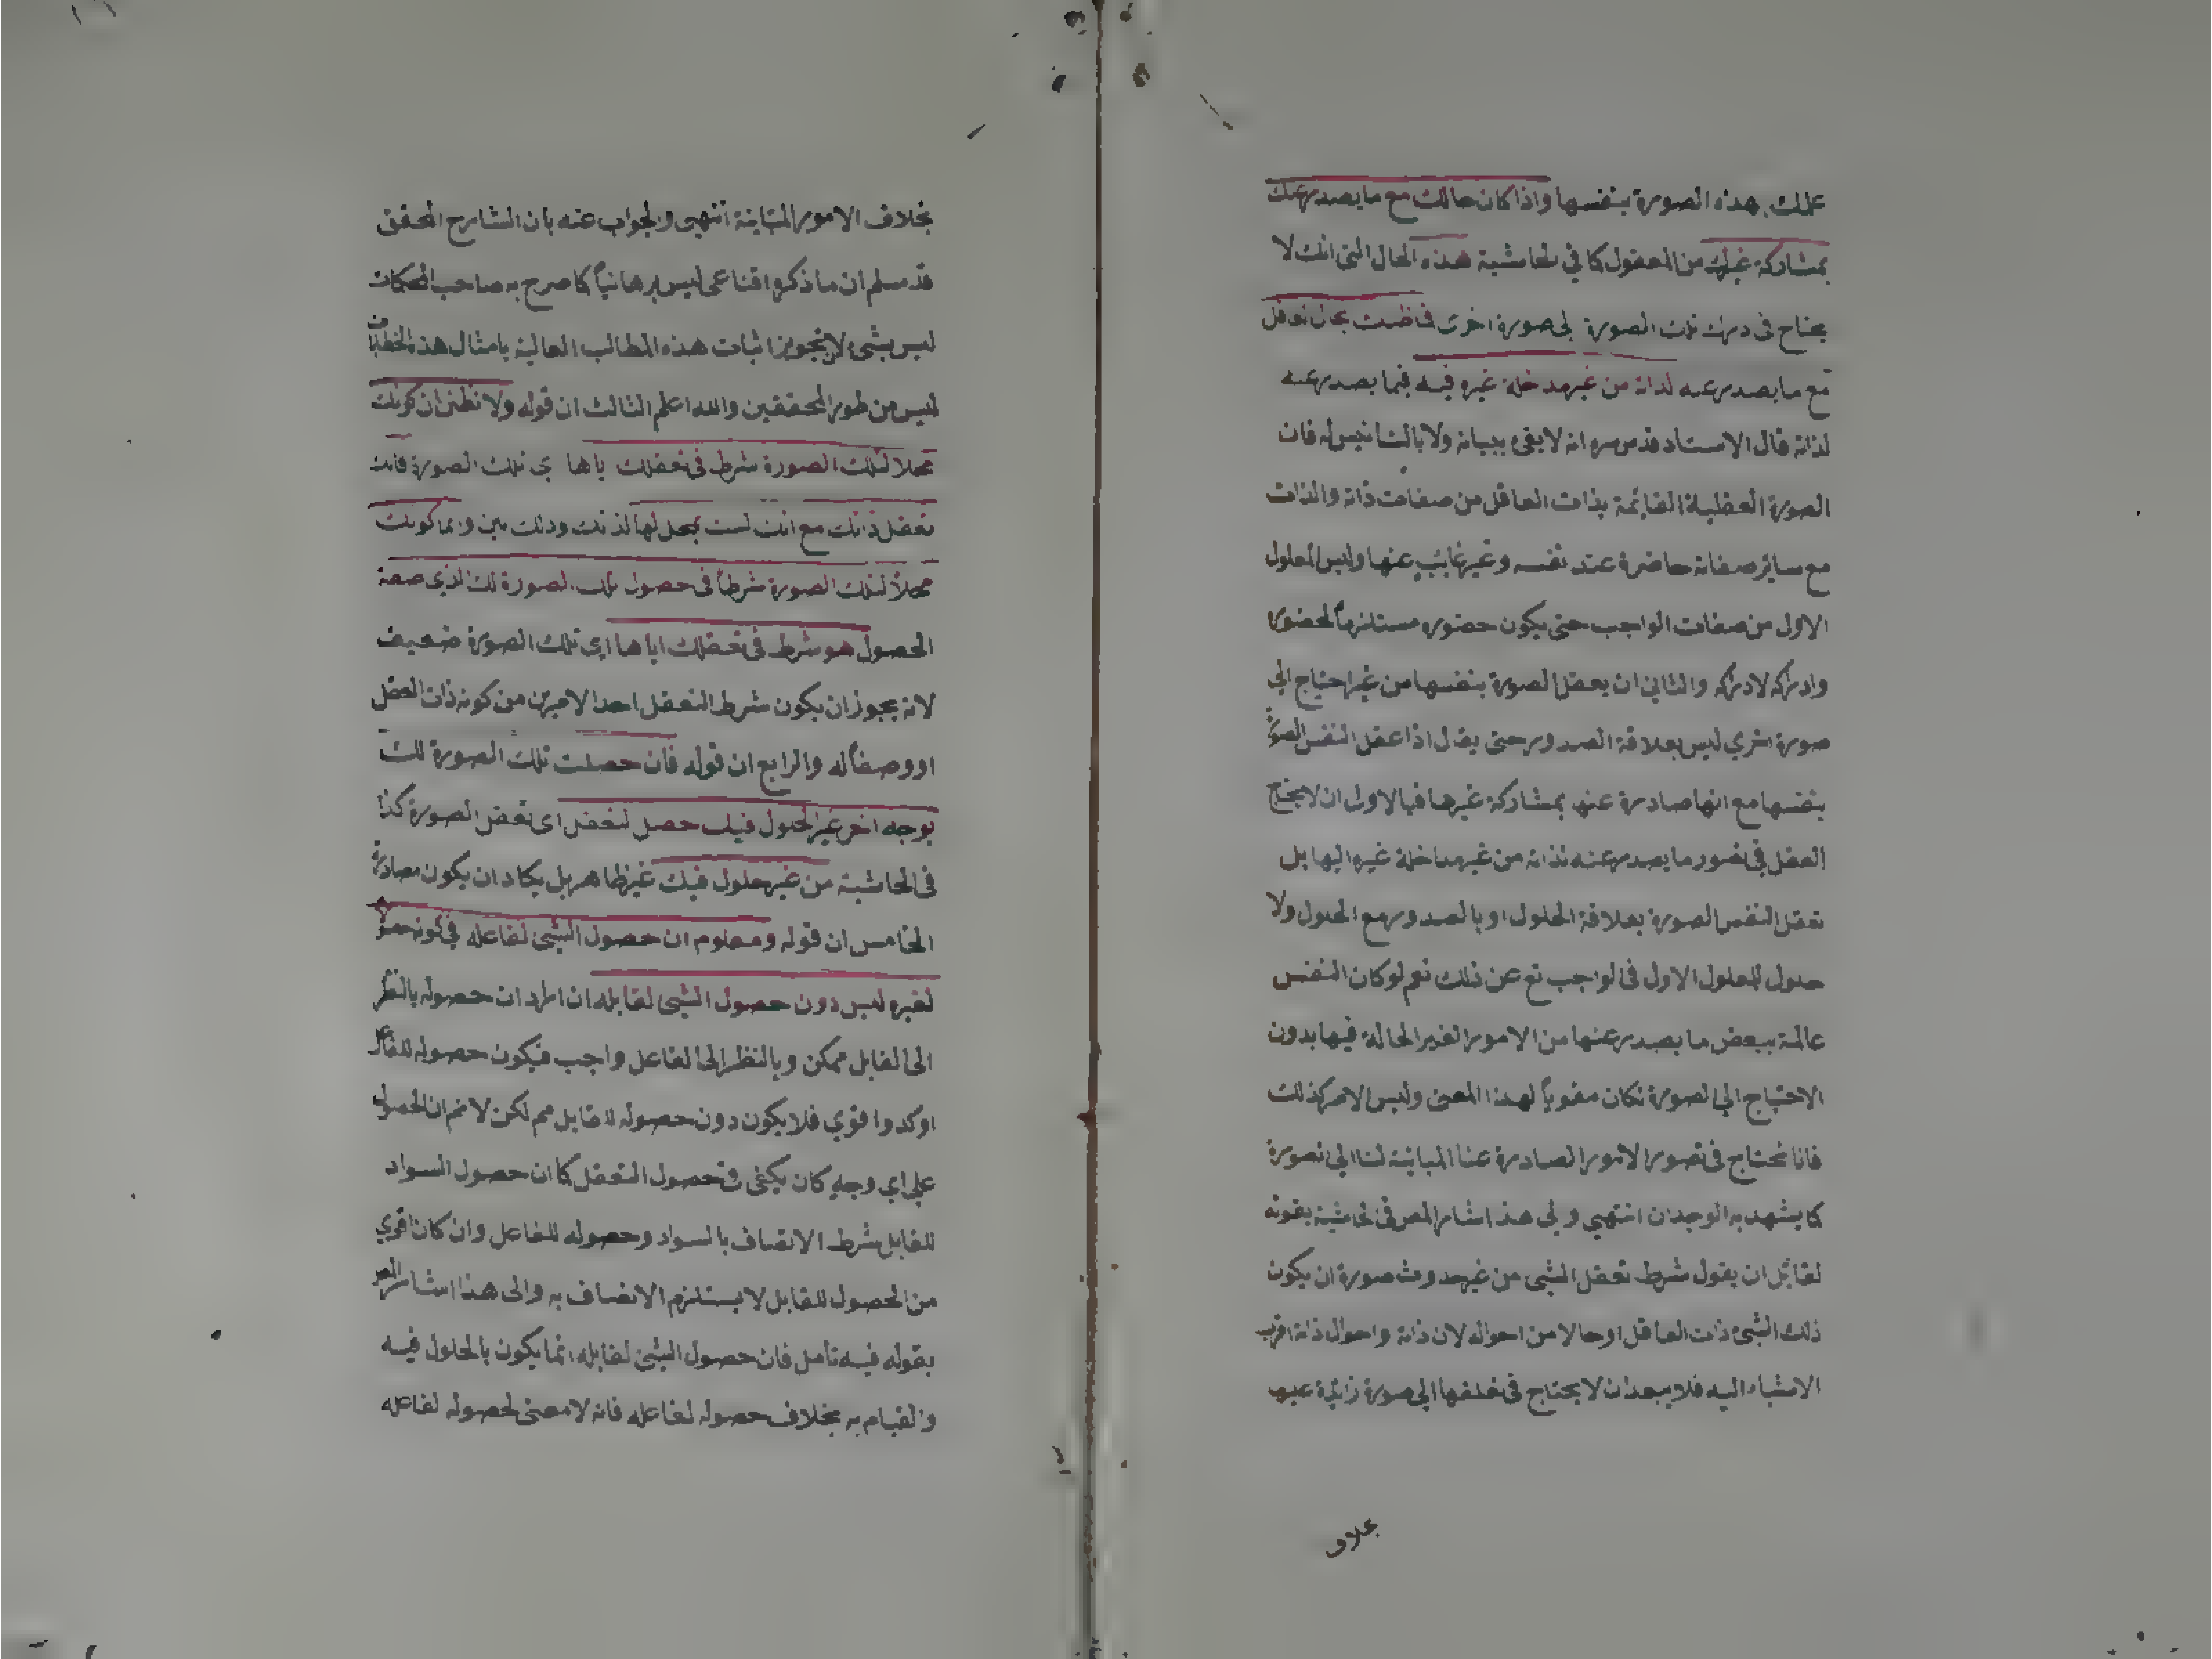 علمك بهذه الصورة بنفسها واذا كان حالك مع ما يصدر عنك
بمشاركة غيرك من المعقول كما في الحاشية هذه الحال التي انك لا
يحتاج في درك تلك الصورة الى صورة اخرى فما ظنك بحال تعقل
مع ما يصدر عنه لذاته من غير مدخلة غيره فيه فيما يصدر عنه
لذاته قال الاستاد قدس سره انه لا يفى ببيانه ولا بالتانيس له فان
الصورة العقلية القائمة بذات العاقل من صفات ذاته والذات
مع سائر صفاته حاضرة عند نفسه وغير غائب عنها وليس المعلول
الاول من صفات الواجب حتى يكون حضوره مستلزماً لحضوره
وادراكه لادراكه والثاني ان يعقل الصورة بنفسها من غير احتياج الى
صورة اخري ليس بعلاقة الصدور حتى يقال اذا عقل النفس الصورة
بنفسها مع انها صادرة عنها بمشاركة غيرها فبالاولى ان لا يحتاج
العقل في تصور ما يصدر عنه لذاته من غير مداخلة غيره اليها بل
تعقل النفس الصورة بعلاقة الحلول او بالصدور مع الحلول ولا
حلول للمعلول الاول في الواجب تع عن ذلك نعم لو كان النفس
عالمة ببعض ما يصدر عنها من الامور الغير الحالة فيها بدون
الاحتياج الي الصورة لكان مقوياً لهذا المعنى وليس الامر كذلك
فانا نحتاج في تصور الامور الصادرة عنا المباينة لنا الي تصورة
كما يشهد به الوجدان انتهي والى هذا اشار المص في الحاشية بقوله
لقائل ان يقول شرط تعقل الشئ من غير حدوث صورة ان يكون
ذلك الشئ ذات العاقل او حالا من احواله لان ذاته واحوال ذاته اقرب
الاشياء اليه فلا يبعد ان لا يحتاج في تعلقها الي صورة زائدة عليها
بخلاف
بخلاف الامور المتباينة انتهى والجواب عنه بان الشارح المحقق
قد سلم ان ما ذكره اقناعي ليس برهانياً كما صرح به صاحب المحكمات
ليس بشئ لا تجويز اثبات هذه المطالب العالية بامثال هذه الخطابيات
ليس من طور المحققين والله اعلم الثالث ان قوله ولا تظنن ان كونك
محلا لتلك الصورة شرط في تعقلك اياها اي تلك الصورة فانك
تعقل ذاتك مع انك لست بمحل لها لذاتك وذلك بين وانما كونك
محلاً لتلك الصورة شرطاً في حصول تلك الصورة لك الذي صفة
الحصول هو شرط في تعقلك اياها اي تلك الصورة ضعيف
لانه يجوز ان يكون شرط التعقل احد الامرين من كونه ذات العقل
او وصفاً له والرابع ان قوله فان حصلت تلك الصورة لك
بوجه اخر غير الحلول فيك حصل لتعقل اى تعقل الصورة كذا
في الحاشية من غير حلول فيك غير ظاهر بل يكاد ان يكون مصادرة
الخامس ان قوله ومعلوم ان حصول الشئ لفاعله في كونه حصولاً
لغيره ليس دون حصول الشئ لقابله ان اراد ان حصوله بالنظر
الى القابل ممكن وبالنظر الى الفاعل واجب فيكون حصوله للفاعل
اوكد واقوي فلا يكون دون حصوله للقابل مم لكن لا نم ان الحصول
علي اي وجه كان يكفى في حصول التعقل كما ان حصول السواد
للقابل شرط الاتصاف بالسواد وحصوله للفاعل وان كان اقوي
من الحصول للقابل لا يستلزم الاتصاف به والى هذا اشار المص
بقوله فيه تأمل فان حصول الشئ لقابله انما يكون بالحلول فيه
والقيام به بخلاف حصوله لفاعله فانه لا معنى لحصوله لفاعله